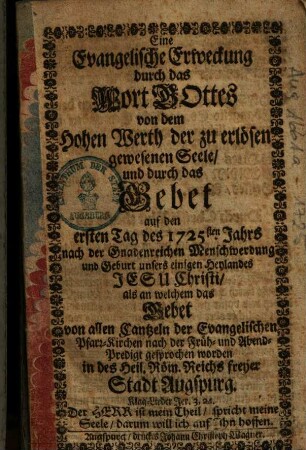 Eine
Evangelische Erweckung
durch das
Wort GOttes
von dem
Hohen Werth der zu erlösen
gewesenen Seele/
und durch das
Gebet
auf den
ersten Tag des 1725sten Jahrs
nach der Gnadenreichen Menschwerdung
und Geburt unsers einigen Heylandes
JESU Christi/
als an welchem das
Gebet
von allen Cantzeln der Evangelischen
Pfarr-Kirchen nach der Früh- und Abend-
Predigt gesprochen worden
in des Heil. Röm. Reichs freyer
Stadt Augspurg.
Klag-Lieder Jer. 3. 24.
Der HERR ist mein Theil/ spricht meine
Seele/ darum will ich auf Ihn hoffen.
Augspurg/ druckts Johann Christoph Wagner.